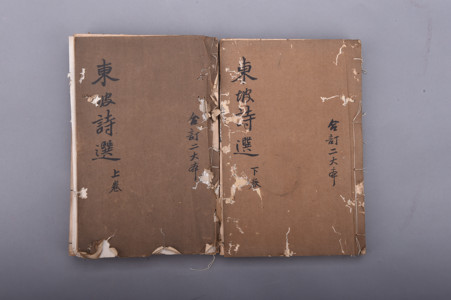 東坡詩選
上卷
合訂二大本
東坡詩選
下卷
合訂二大本